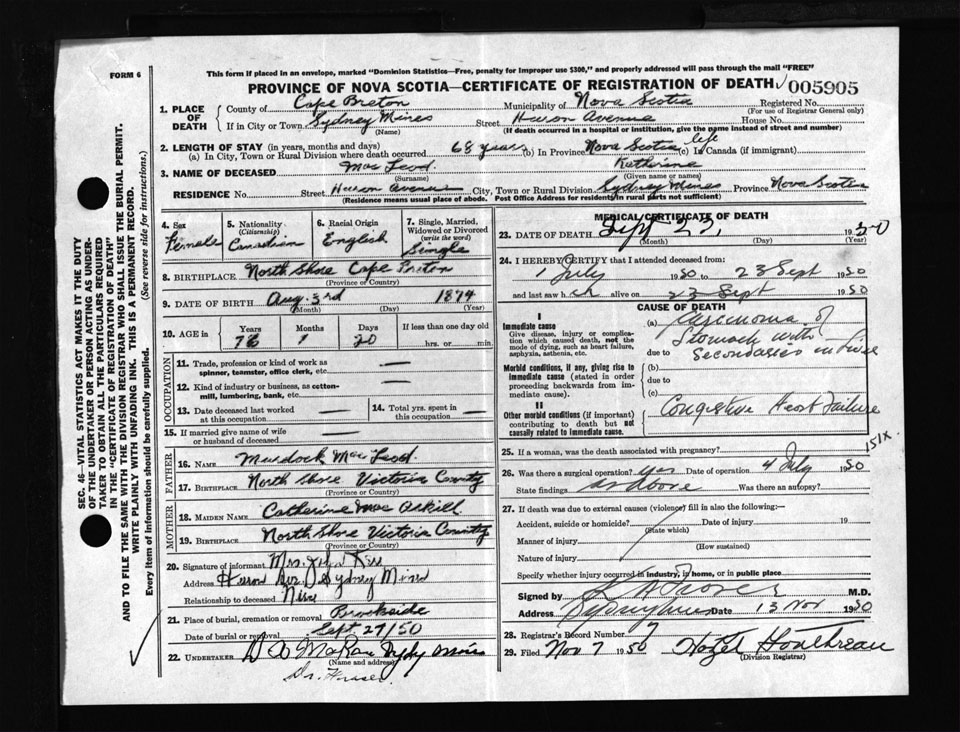 FORM 6
This form if placed in an envelope, marked "Dominion Statistics—Free, penalty for improper use $300," and properly addressed will pass through the mail "FREE"
PROVINCE OF NOVA SCOTIA—CERTIFICATE OF REGISTRATION OF DEATH 005905
1. PLACE OF DEATH
County of Cape Breton Municipality of Nova Scotia Registered No.
(For use of Registrar General only)
If in City or Town Sydney Mines Street Huron Avenue House No.
(Name) (If death occurred in a hospital or institution, give the name instead of street and number)
2. LENGTH OF STAY (in years, months and days)
(a) In City, Town or Rural Division where death occurred 68 years (b) In Province Nova Scotia life (c) In Canada (if immigrant)
3. NAME OF DECEASED Mac Leod Katherine
(Surname) (Given name or names)
RESIDENCE No. Street Huron Avenue City, Town or Rural Division Sydney Mines Province Nova Scotia
(Residence means usual place of abode. Post Office Address for residents in rural parts not sufficient)
4. Sex Female
5. Nationality (Citizenship) Canadian
6. Racial Origin English
7. Single, Married, Widowed or Divorced (write the word) Single
8. BIRTHPLACE North Shore Cape Breton
(Province or Country)
9. DATE OF BIRTH Aug. 3rd 1874
(Month) (Day) (Year)
10. AGE in Years Months Days If less than one day old
76 1 20 hrs. or min.
OCCUPATION
11. Trade, profession or kind of work as spinner, teamster, office clerk, etc. —
12. Kind of industry or business, as cotton-mill, lumbering, bank, etc. —
13. Date deceased last worked at this occupation —
14. Total yrs. spent in this occupation —
15. If married give name of wife or husband of deceased —
FATHER
16. NAME Murdock Mac Leod
17. BIRTHPLACE North Shore Victoria County
(Province or Country)
MOTHER
18. MAIDEN NAME Catherine Mac Askill
19. BIRTHPLACE North Shore Victoria County
(Province or Country)
20. Signature of informant Mrs. John
Address Huron Ave. Sydney Mines
Relationship to deceased Niece
21. Place of burial, cremation or removal Brookside
Date of burial or removal Sept 27/50
22. UNDERTAKER Sydney Mines
(Name and address)
Dr. Fraser
MEDICAL CERTIFICATE OF DEATH
23. DATE OF DEATH Sept 23, 1950
(Month) (Day) (Year)
24. I HEREBY CERTIFY that I attended deceased from:
1 July 1950 to 23 Sept 1950
and last saw h er alive on 23 Sept 1950
CAUSE OF DEATH
I
Immediate cause
Give disease, injury or complication which caused death, not the mode of dying, such as heart failure, asphyxia, asthenia, etc.
(a) Carcinoma of
Stomach with
due to Secondaries in Liver
Morbid conditions, if any, giving rise to immediate cause (stated in order proceeding backwards from immediate cause).
(b)
due to
(c)
II
Other morbid conditions (if important) contributing to death but not causally related to immediate cause.
Congestive Heart Failure
25. If a woman, was the death associated with pregnancy? 151X.
26. Was there a surgical operation? yes Date of operation 4 July 1950
State findings as above Was there an autopsy?
27. If death was due to external causes (violence) fill in also the following:—
Accident, suicide or homicide? Date of injury 19
(State which)
Manner of injury
(How sustained)
Nature of injury
Specify whether injury occurred in industry, in home, or in public place
Signed by M.D.
Address Sydney Mines Date 13 Nov 1950
28. Registrar's Record Number 7
29. Filed Nov 7 1950 Hazel
(Division Registrar)
SEC. 46—VITAL STATISTICS ACT MAKES IT THE DUTY
OF THE UNDERTAKER OR PERSON ACTING AS UNDER-
TAKER TO OBTAIN ALL THE PARTICULARS REQUIRED
IN THE "CERTIFICATE OF REGISTRATION OF DEATH"
AND TO FILE THE SAME WITH THE DIVISION REGISTRAR WHO SHALL ISSUE THE BURIAL PERMIT.
WRITE PLAINLY WITH UNFADING INK. THIS IS A PERMANENT RECORD.
Every item of information should be carefully supplied. (See reverse side for instructions.)